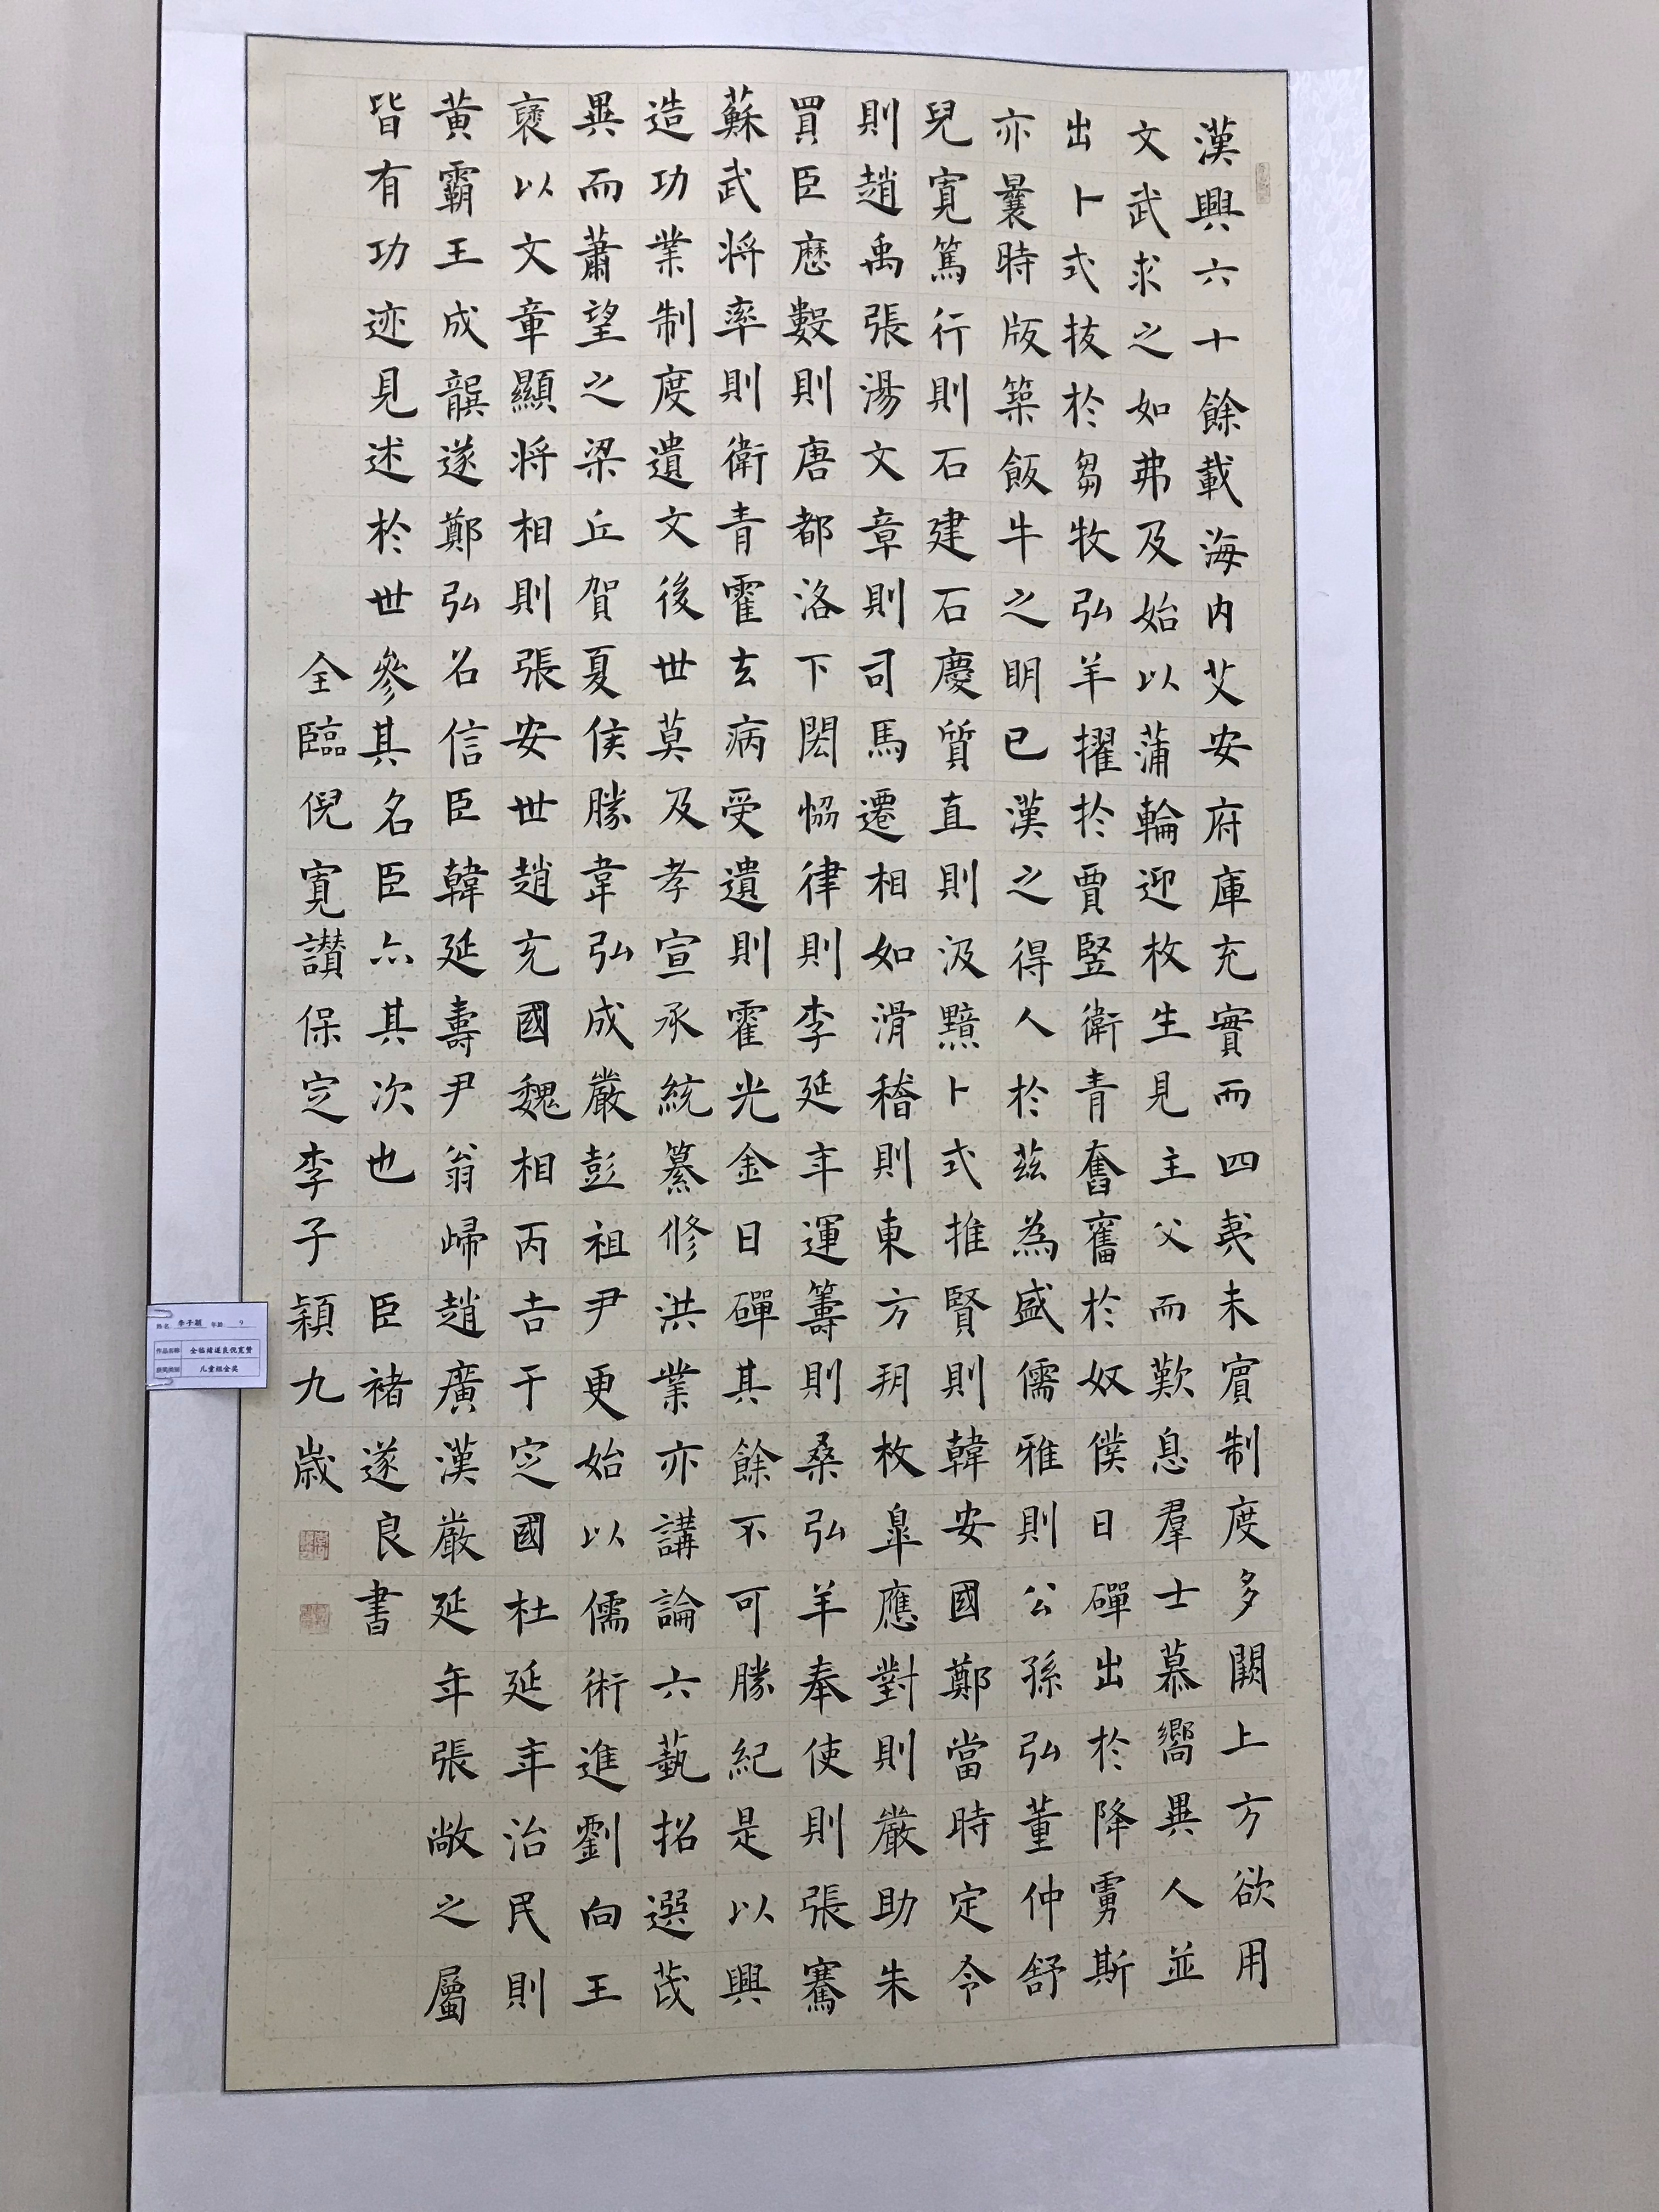 漢興六十餘載海内艾安府庫充實而四夷未賓制度多闕上方欲用
文武求之如弗及始以蒲輪迎枚生見主父而歎息羣士慕嚮異人並
出卜式拔於芻牧弘羊擢於賈竪衛青奮舊於奴僕日磾出於降虜斯
亦曩時版築飯牛之明已漢之得人於茲為盛儒雅則公孫弘董仲舒
兒寬篤行則石建石慶質直則汲黯卜式推賢則韓安國鄭當時定令
則趙禹張湯文章則司馬遷相如滑稽則東方朔枚臯應對則嚴助朱
買臣厯數則唐都洛下閎恊律則李延年運籌則桑弘羊奉使則張騫
蘇武将率則衛青霍玄病受遺則霍光金日磾其餘不可勝紀是以興
造功業制度遺文後世莫及孝宣承統纂修洪業亦講論六藝招選茂
異而蕭望之梁丘賀夏侯勝韋弘成嚴彭祖尹更始以儒術進劉向王
襃以文章顯将相則張安世趙充國魏相丙吉于定國杜延年治民則
黄霸王成龔遂鄭弘召信臣韓延壽尹翁歸趙廣漢嚴延年張敞之屬
皆有功迹見述於世參其名臣亦其次也 臣褚遂良書
全臨倪寬讃保定李子穎九歲
姓名 李子颖 年龄 9
作品名称 全临褚遂良倪宽赞
获奖类别 儿童组金奖